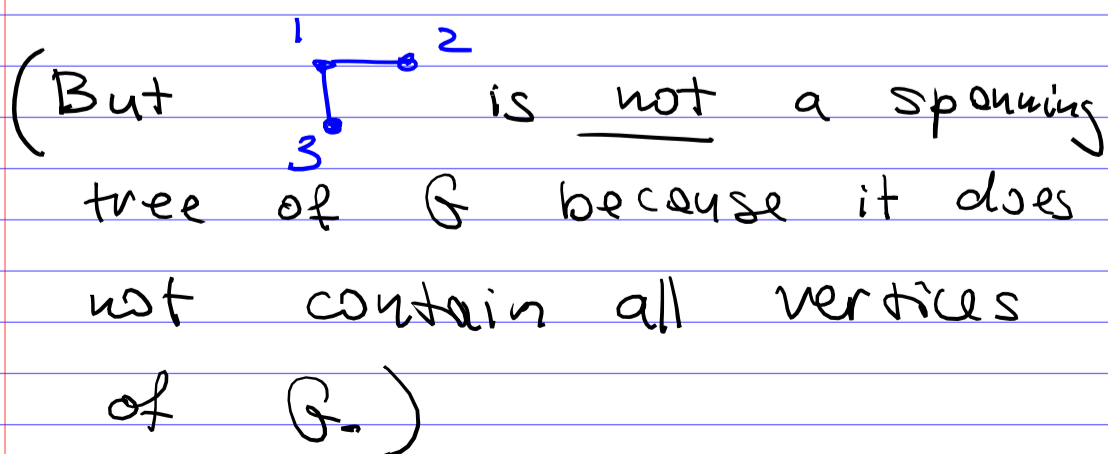 1 2
(But is not a spanning
3
tree of G because it does
not contain all vertices
of G.)